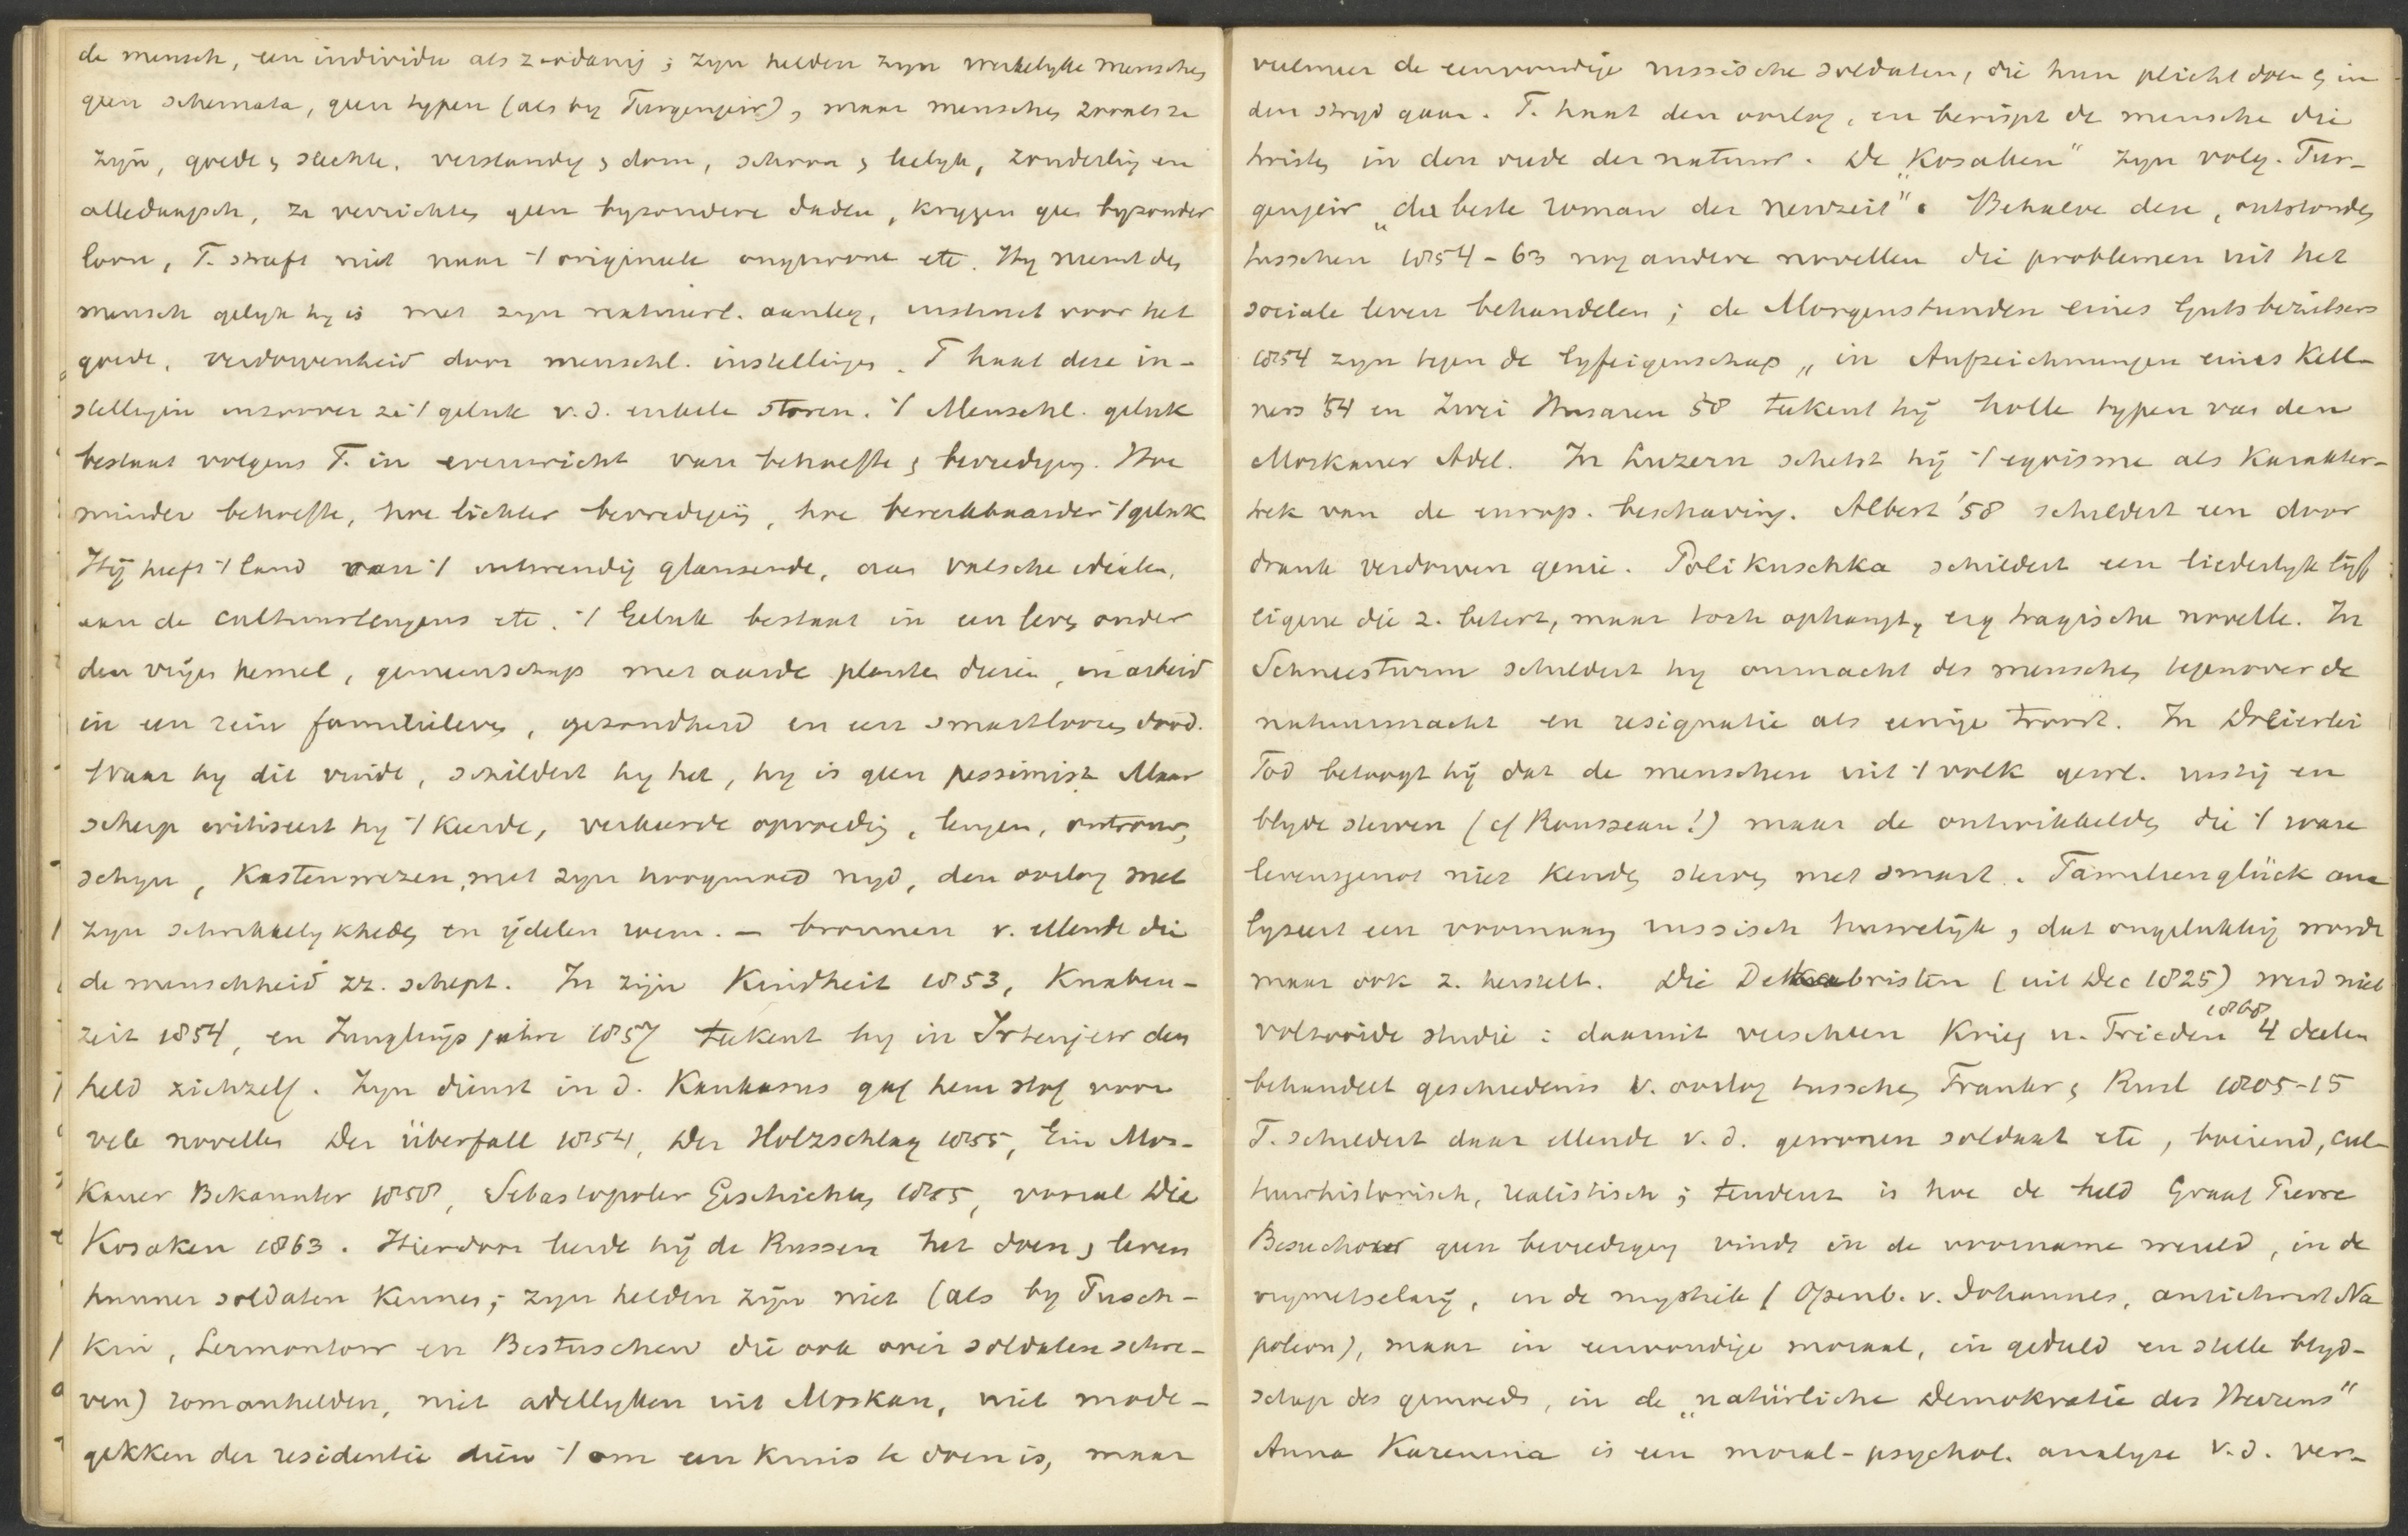 de mensch, een individu als zoodanig; zijn helden zijn werkelijke menschen
geen schemata, geen typen (als by Turgenjeir), maar menschen zooals ze
zijn, goede & slechte, verstandig & dom, schoon & lelyk, zonderling en
alledaagsch, ze verrichten geen byzondere daden, krygen geen byzonder
loon, T. streeft niet naar 't originele ongewone etc. Hy neemt den
mensch gelyk hy is met zyn natuurl. aanleg, instinct voor het
goede, verdorvenheid door menschl. instellingen. T haat deze in-
stellingen inzoover ze 't geluk v.d. enkele storen. 't Menschl. geluk
bestaat volgens T. in evenwicht van behoefte & bevrediging. Hoe
minder behoefte, hoe lichter bevrediging, hoe bereikbaarder 't geluk
Hij heeft 't land aan 't uitwendig glanzende, aan valsche idealen,
aan de cultuurleugens etc. 't Geluk bestaat in een leven onder
den vrijen hemel, gemeenschap met aarde planten dieren, in arbeid
in een rein familieleven, gezondheid en een smarteloozen dood.
Waar hy dit vindt, schildert hy het, hy is geen pessimist. Maar
scherp critiseert hy 't kwade, verkeerde opvoeding, leugen, ontrouw,
schyn, Kastenwezen, met zyn hoogmoed nyd, den oorlog met
zyn schrikkelykheden en ijdelen roem. – bronnen v. ellende die
de menschheid zz. schept. In zijn Kindheit 1853, Knaben-
zeit 1854, en Junglingsjahre 1857 teekent hy in Irtenjew den
held zichzelf. Zyn dienst in d. Kaukasus gaf hem stof voor
vele novellen Der Überfall 1854, Der Holzschlag 1855, Ein Mos-
kauer Bekannter 1858, Sebastopoler Geschichten 1855, vooral Die
Kosaken 1863. Hierdoor leerde hij de Russen het doen & leven
hunner soldaten kennen; zyn helden zijn niet (als by Pusch-
kin, Lermontow en Bestuschew die ook over soldaten schre-
ven) romanhelden, niet adellyken uit Moskau, niet mode-
gekken der residentie dien 't om een kruis te doen is, maar
veelmeer de eenvoudige russische soldaten, die hun plicht doen & in
den stryd gaan. T. haat den oorlog, en berispt de mensche die
twisten in den vrede der natuur. De „Kosaken" zyn volg. Tur-
genjeir „der beste roman der neuzeit". Behalve deze, ontstonden
tusschen 1854-63 nog andere novellen die problemen uit het
sociale leven behandelen; de Morgenstunden eines Gutsbezitsers
1854 zyn tegen de lyfeigenschap, in Aufzeichnungen eines Kell-
ners '54 en Zwei Husaren '58 teekent hij holle typen van den
Moskauer Adel. In Luzern schetst hij 't egoisme als karakter-
trek van de europ. beschaving. Albert '58 schildert een door
drank verdorven genie. Polikuschka schildert een liederlyk lijf
eigene die z. betert, maar toch ophangt, erg tragische novelle. In
Schneesturm schildert hy onmacht des menschen tegenover de
natuurmacht en resignatie als eenige troost. In Dreierlei
Tod betoogt hij dat de menschen uit 't volk gewl. rustig en
blyde sterven (cf Rousseau!) maar de ontwikkelden die 't ware
levensgenot niet kenden sterven met smart. Familienglück ana
lyseert een voornaam russisch huwelijk, dat ongelukkig wordt
maar ook z. herstelt. Die Dekabristen (uit Dec 1825) werd niet
voltooide studie: daaruit verscheen Krieg u. Frieden 1868 4 deelen
behandelt geschiedenis v. oorlog tusschen Frankr & Rusl 1805-15
T. schildert daar ellende v.d. gewonen soldaat etc, boeiend, cul-
tuurhistorisch, realistisch; tendenz is hoe de held Graaf Pierre
Besuchow geen bevrediging vindt in de voorname wereld, in de
vrymetselarij, in de mystiek (Openb. v. Johannes, antichrist Na
poleon), maar in eenvoudige moraal, in geduld en stille blyd-
schap des gemoeds, in de „natürliche Demokratie des Herzens"
Anna Karenina is een moral-psychol. analyse v.d. vers-